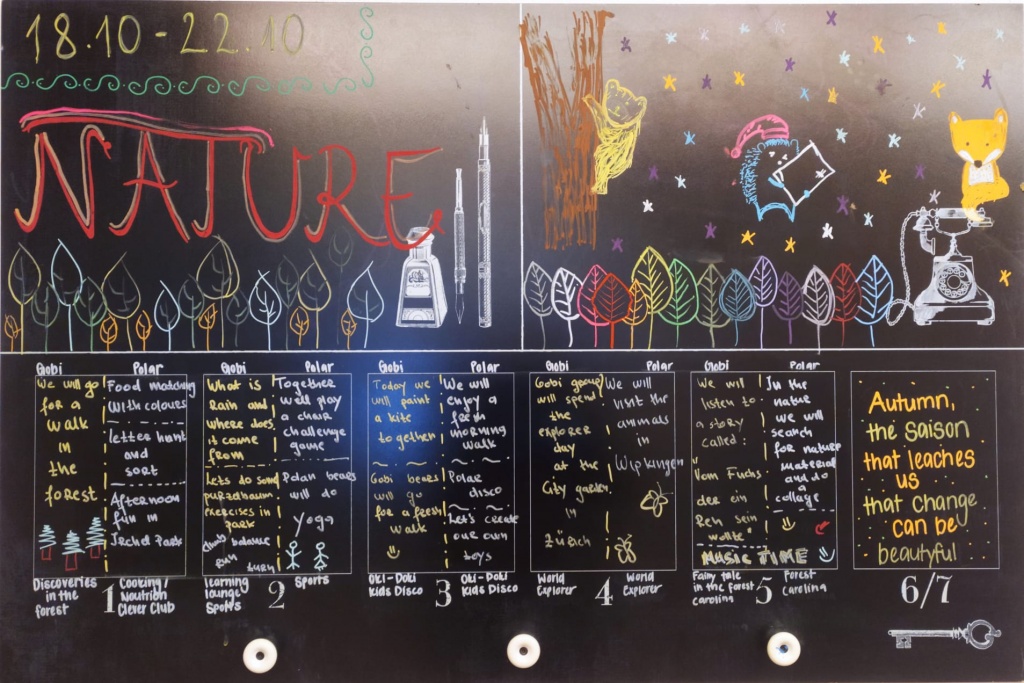 18.10-22.10
NATURE
Gobi
We will go
for a
walk
in
the
forest
Polar
Food matching
with colours
letter hunt
and
sort
Afternoon
fun in
Discoveries
in the
forest
1
Cooking/
Nutrition
Clever Club
Gobi
What is
Rain and
where does
it come
from
Lets do some
purzelbaum
exercises in
park
balance
run
Polar
Together
will play
a chair
challenge
game
Polar bears
will do
Yoga
learning
lounge
Sports
2
Sports
Gobi
Today we
will paint
a kite
together
Gobi bears
will go
for a fresh
walk
Polar
We will
enjoy a
fresh
morning
walk
Polar
disco
Let's create
our own
toys
Oki-Doki
Kids Disco
3
Oki-Doki
Kids Disco
Gobi
Gobi group
will spend
the
explorer
day
at the
City garden
in
Zürich
Polar
We will
visit the
animals
in
Wipkingen
World
Explorer
4
World
Explorer
Gobi
We will
listen to
a story
called:
"Vom Fuchs
der ein
Reh sein
wollte"
Polar
In the
nature
we will
search
for nature
material
and do a
collage
MUSIC TIME
Fairy tale
in the forest
caroling
5
Forest
Caroling
Autumn,
the saison
that teaches
us
that change
can be
beautyful
6/7